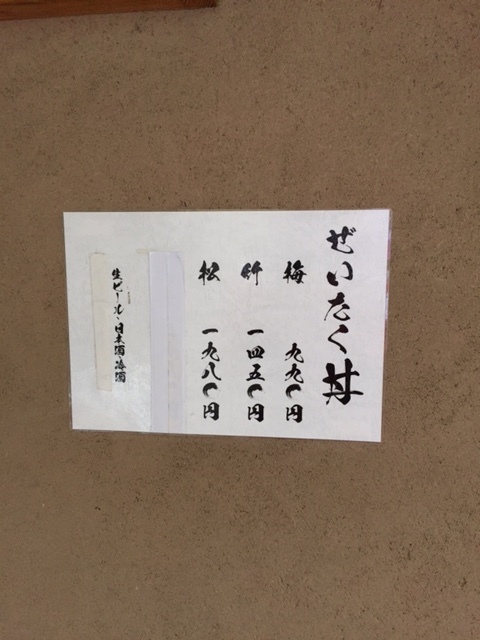 ぜいたく丼
梅 九九〇円
竹 一四五〇円
松 一九八〇円
生ビール・日本酒・梅酒